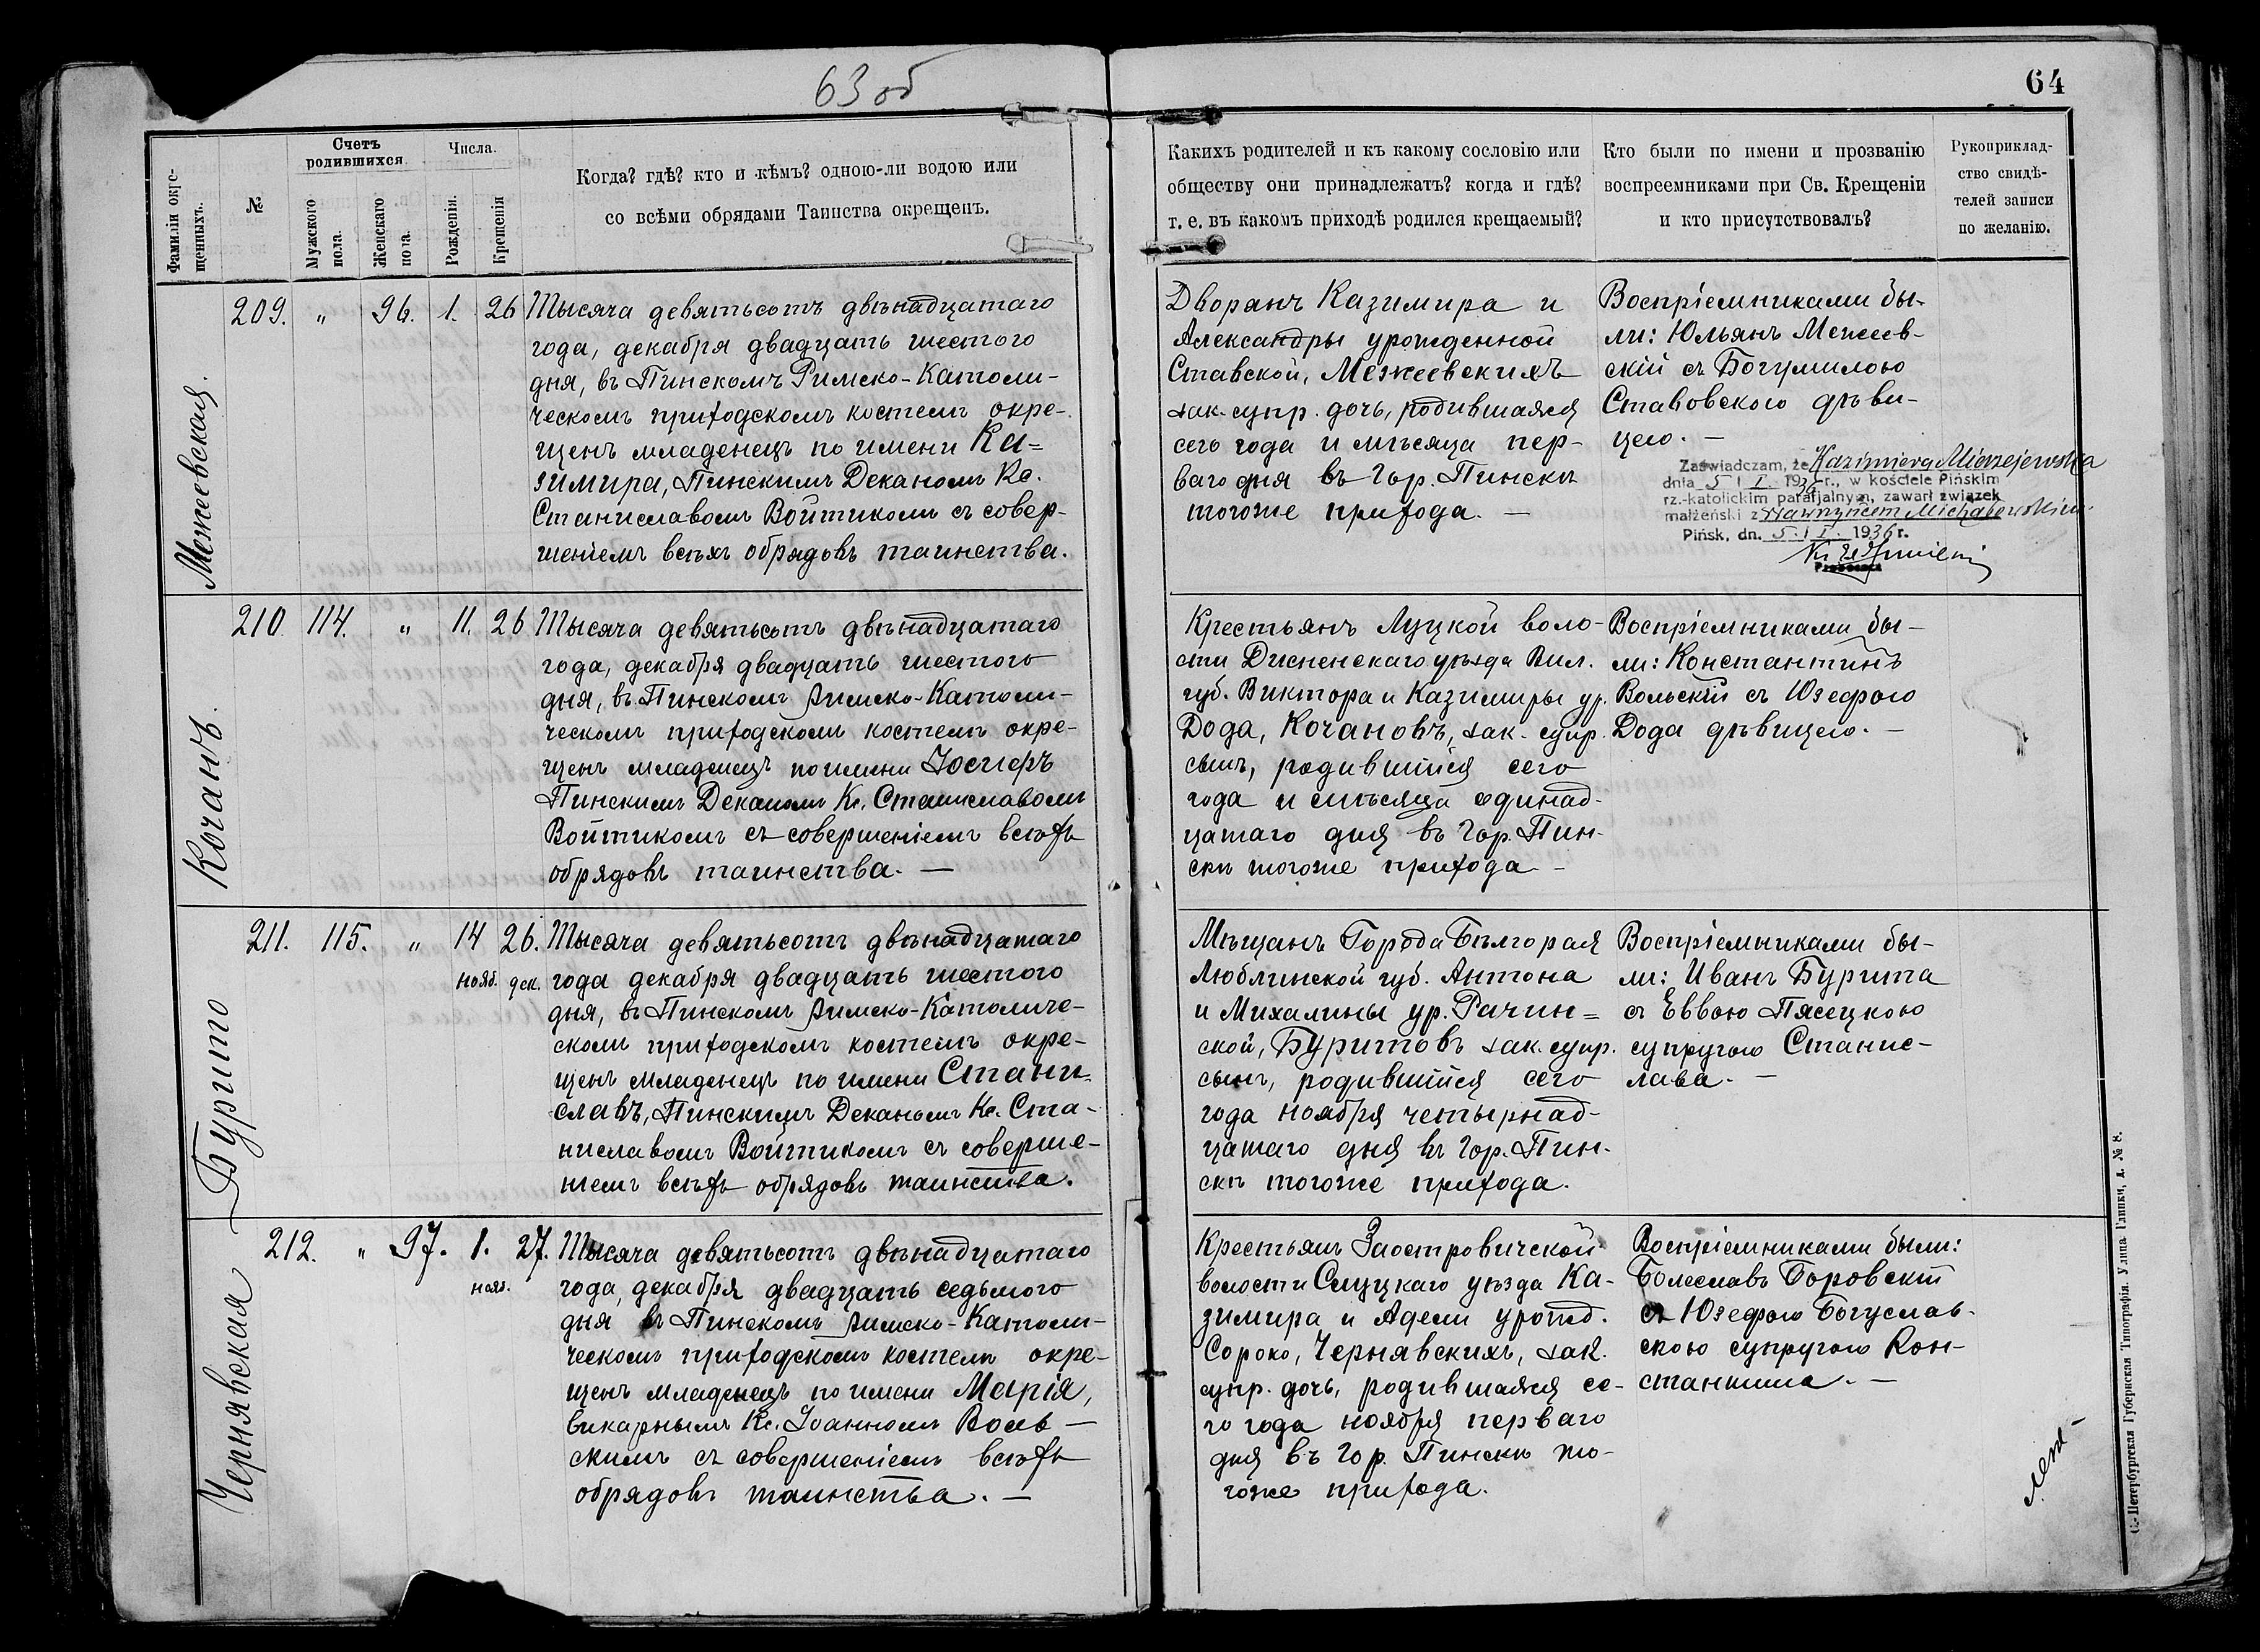 63 об
64
Фамиліи окре-
щенныхъ.
№
Счетъ
родившихся.
Мужского
пола.
Женскаго
пола.
Числа.
Рожденія.
Крещенія
Когда? гдѣ? кто и кѣмъ? одною-ли водою или
со всѣми обрядами Таинства окрещенъ.
Какихъ родителей и къ какому сословію или
обществу они принадлежатъ? когда и гдѣ?
т. е. въ какомъ приходѣ родился крещаемый?
Кто были по имени и прозванію
воспреемниками при Св. Крещеніи
и кто присутствовалъ?
Рукоприклад-
ство свидѣ-
телей записи
по желанію.
Межеевская.
209. " 96. 1. 26
Тысяча девятьсотъ двѣнадцатаго
года, декабря двадцать шестого
дня, въ Пинскомъ Римско-Католи-
ческомъ приходскомъ костелѣ окре-
щенъ младенецъ по имени Ка=
зимира, Пинскимъ Деканомъ Кс.
Станиславомъ Войтикомъ съ совер-
шеніемъ всѣхъ обрядовъ таинства.
Дворянъ Казимира и
Александры урожденной
Ставской, Межеевскихъ
зак. супр. дочь, родившаяся
сего года и мѣсяца пер-
ваго дня въ Гор. Пинскѣ
тогоже прихода. —
Воспріемниками бы-
ли: Юльянъ Межеев-
скій съ Богумилою
Ставовскою дѣви-
цею. —
Zaświadczam, że Kazimiera Mierzejewska
dnia 5 I 1936 r., w kościele Pińskim
rz.-katolickim parafjalnym, zawarł związek
małżeński z Wawrzyńcem Michałowskim
Pińsk, dn. 5 I 1936 r.
Proboszcz
Кочанъ.
210. 114. " 11. 26
Тысяча девятьсотъ двѣнадцатаго
года, декабря двадцать шестого
дня, въ Пинскомъ Римско-Католи-
ческомъ приходскомъ костелѣ окре-
щенъ младенецъ по имени Іосифъ
Пинскимъ Деканомъ Кс. Станиславомъ
Войтикомъ съ совершеніемъ всѣхъ
обрядовъ таинства. —
Крестьянъ Луцкой воло-
сти Дисненскаго уѣзда Вил.
губ. Виктора и Казимиры ур.
Дода, Кочановъ, зак. супр.
сынъ, родившійся сего
года и мѣсяца одинад-
цатаго дня въ Гор. Пин-
скѣ тогоже прихода —
Воспріемниками бы-
ли: Константинъ
Вольскій съ Юзефою
Дода дѣвицею. —
Бурито
211. 115. " 14 26.
нояб. дек.
Тысяча девятьсотъ двѣнадцатаго
года декабря двадцать шестого
дня, въ Пинскомъ Римско-Католиче-
скомъ приходскомъ костелѣ окре-
щенъ младенецъ по имени Стани=
славъ, Пинскимъ Деканомъ Кс. Ста-
ниславомъ Войтикомъ съ соверше-
ніемъ всѣхъ обрядовъ таинства.
Мѣщанъ Города Бѣлгорая
Люблинской губ. Антона
и Михалины ур. Рачин=
ской, Буритовъ зак. супр.
сынъ, родившійся сего
года ноября четырнад-
цатаго дня въ Гор. Пин-
скѣ тогоже прихода.
Воспріемниками бы-
ли: Иванъ Бурита
съ Еввою Пясецкою
супругою Станис-
лава. —
Чернявская
212. " 97. 1. 27.
нояб.
Тысяча девятьсотъ двѣнадцатаго
года, декабря двадцать седьмого
дня въ Пинскомъ Римско-Католи-
ческомъ приходскомъ костелѣ окре-
щенъ младенецъ по имени Марія,
викарнымъ Кс. Іоанномъ Воль-
скимъ съ совершеніемъ всѣхъ
обрядовъ таинства. —
Крестьянъ Заостровичской
волости Слуцкаго уѣзда Ка-
зимира и Адели урожд.
Сороко, Чернявскихъ, зак.
супр. дочь, родившаяся се-
го года ноября перваго
дня въ Гор. Пинскѣ то-
гоже прихода.
Воспріемниками были:
Болеславъ Боровскій
съ Юзефою Богуслав-
скою супругою Кон-
стантина. —
С.-Петербургская Губернская Типографія. Улица Глинки, д. № 8.